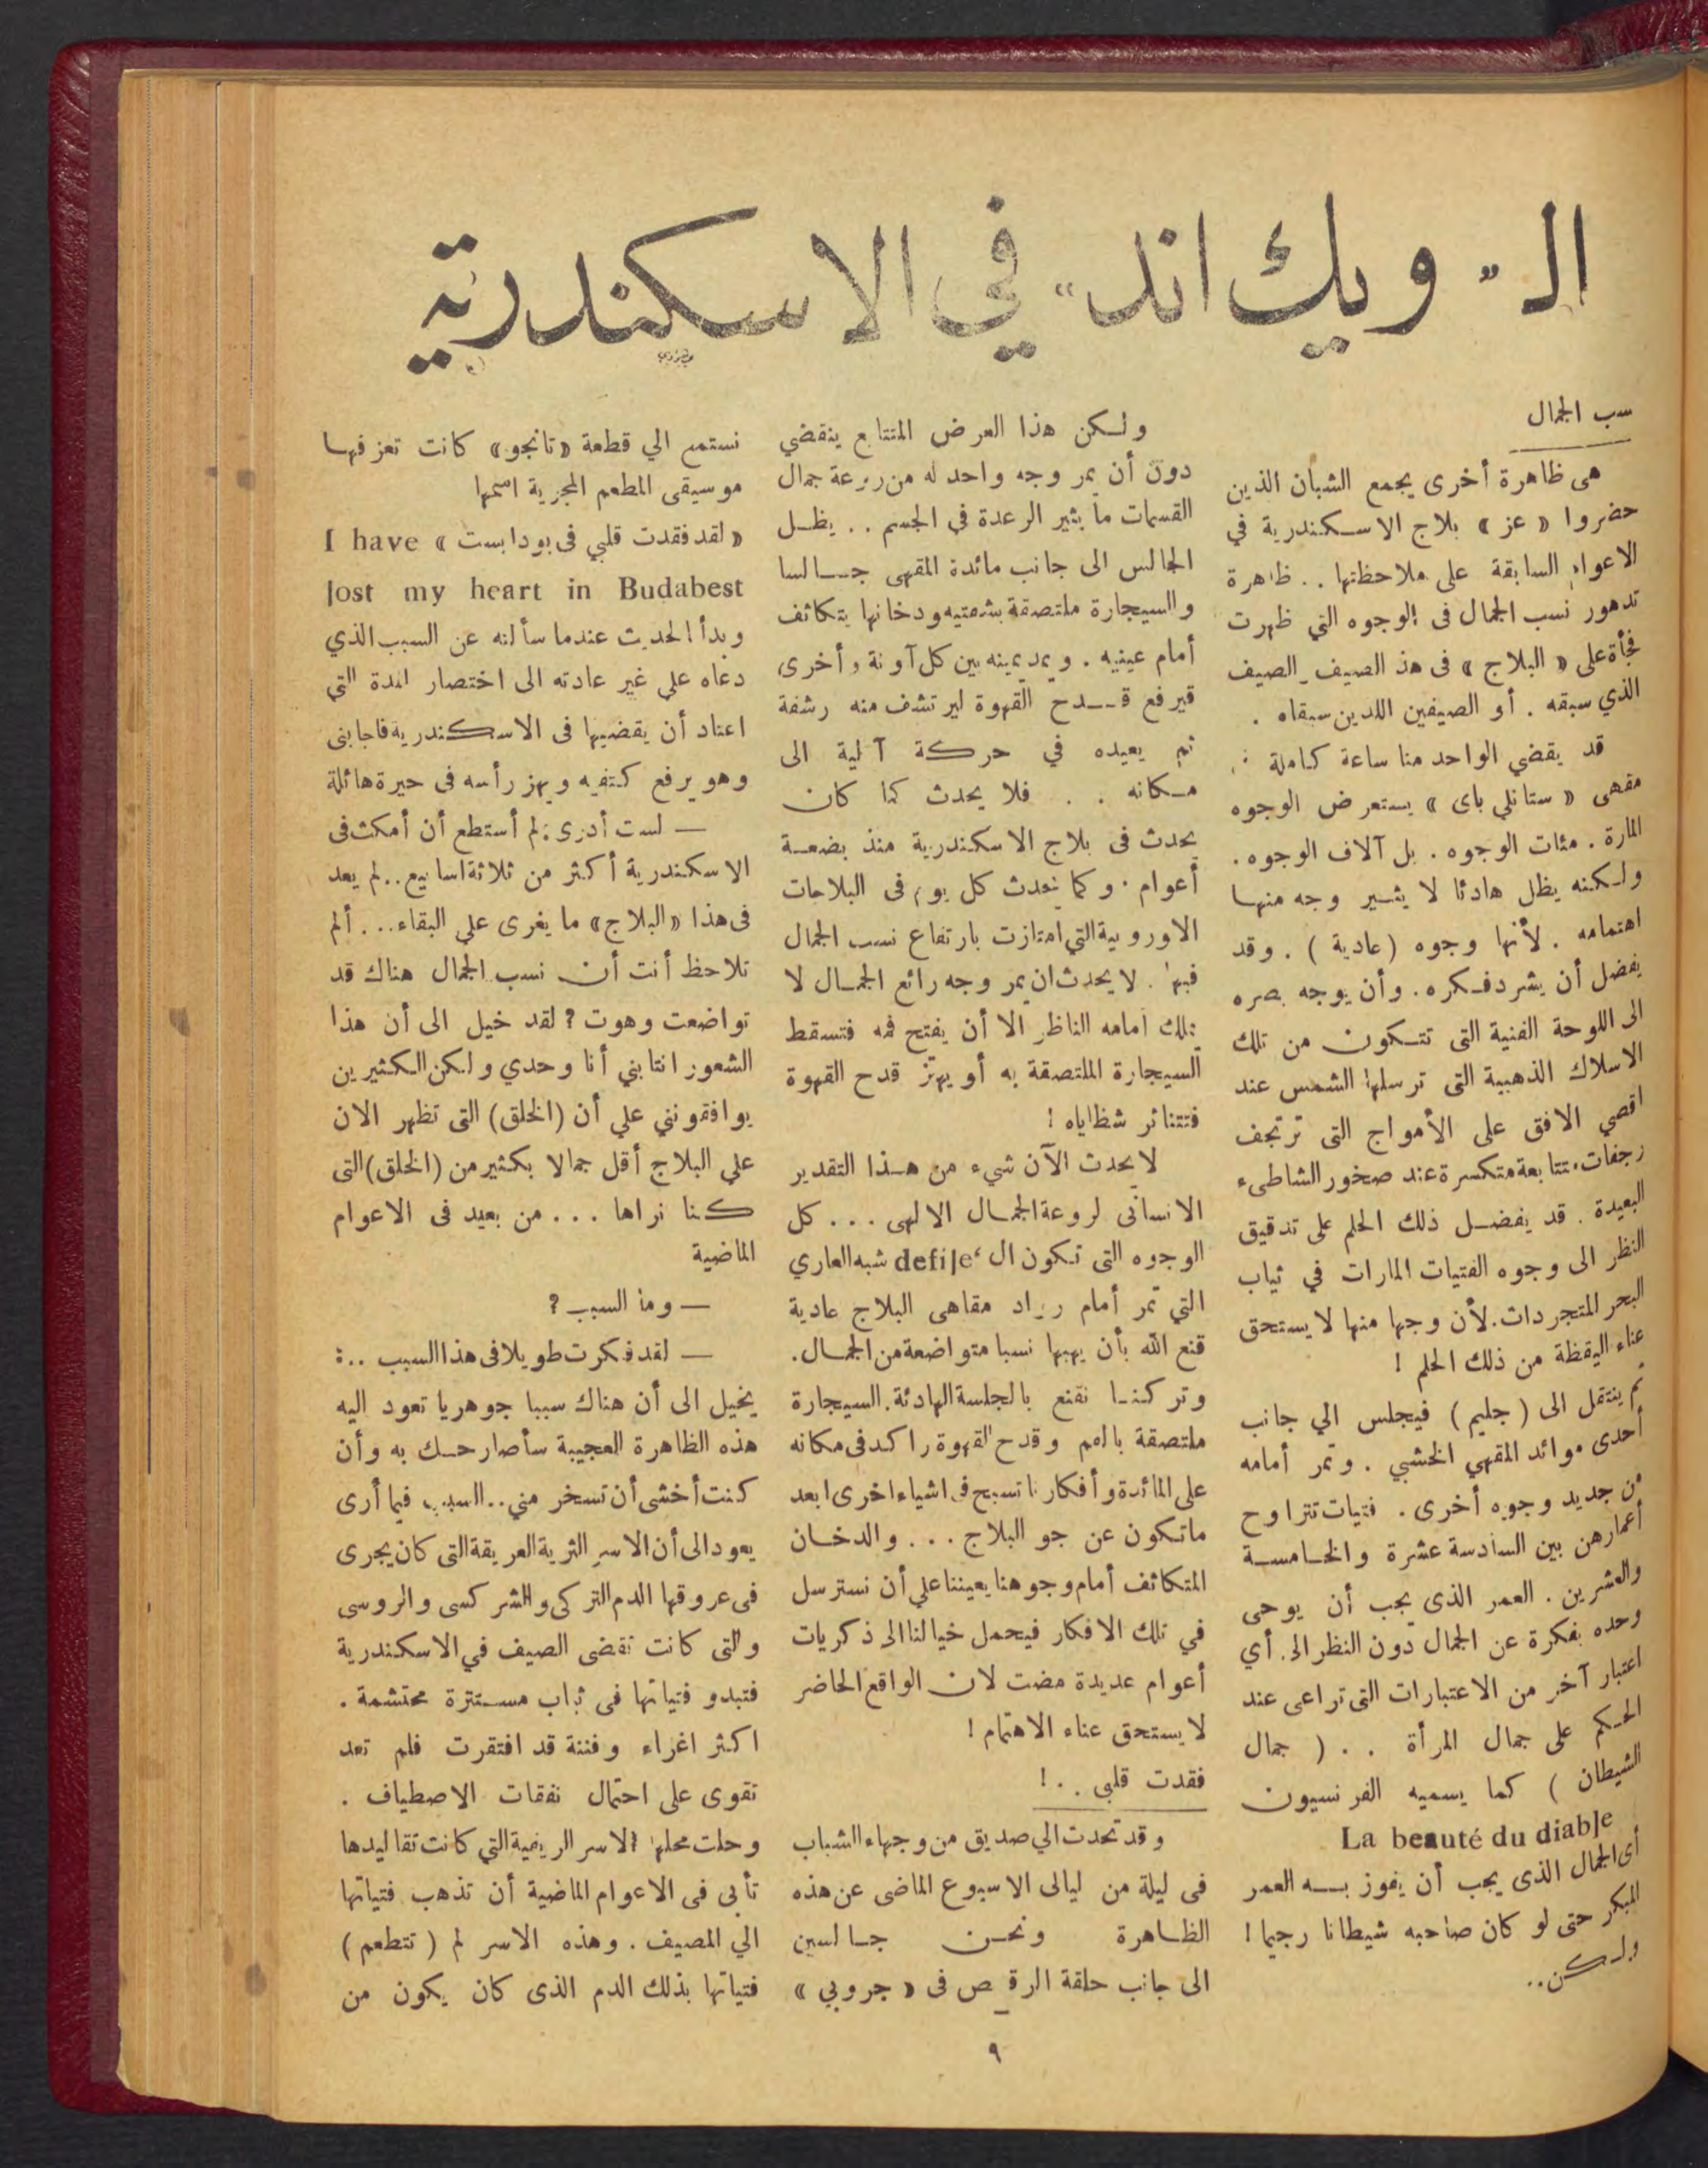 الـ „ويك اند“ في الاسكندرية
سب الجمال
هى ظاهرة أخرى يجمع الشبان الذين
حضروا « عز » بلاج الاسكندرية في
الاعوام السابقة على ملاحظتها .. ظاهرة
تدهور نسب الجمال فى الوجوه التي ظهرت
فجأة على « البلاج » فى هذ الصيف ـ الصيف
الذي سبقه . أو الصيفين اللدين سبقاه .
قد يقضي الواحد منا ساعة كاملة
مقهى « ستانلي باى » يستعرض الوجوه
المارة . مئات الوجوه . بل آلاف الوجوه .
ولكنه يظل هادئا لا يثير وجه منها
اهتمامه . لأنها وجوه (عادية) . وقد
يفضل أن يشرد فكره . وأن يوجه بصره
الى اللوحة الفنية التى تتكون من تلك
الاسلاك الذهبية التى ترسلها الشمس عند
اقصي الافق على الأمواج التى ترتجف
رجفات متتابعة متكسرة عند صخور الشاطىء
البعيدة . قد يفضل ذلك الحلم على تدقيق
النظر الى وجوه الفتيات المارات في ثياب
البحر المتجردات . لأن وجها منها لا يستحق
عناء اليقظة من ذلك الحلم !
ثم ينتقل الى ( جليم ) فيجلس الي جانب
أحدى موائد المقهي الخشبي . وتمر أمامه
من جديد وجوه أخرى . فتيات تتراوح
أعمارهن بين السادسة عشرة والخامسة
والعشرين . العمر الذى يجب أن يوحى
وحده بفكرة عن الجمال دون النظر الى أي
اعتبار آخر من الاعتبارات التى تراعى عند
الحكم على جمال المرأة . . ( جمال
الشيطان ) كما يسميه الفرنسيون
La beauté du diable
أى الجمال الذى يجب أن يفوز بــه العمر
المبكر حتى لو كان صاحبه شيطانا رجيما !
ولكن ..
ولكن هذا العرض المتتابع ينقضي
دون أن يمر وجه واحد له من روعة جمال
القسمات ما يثير الرعدة في الجسم .. يظل
الجالس الى جانب مائدة المقهى جـالسا
والسيجارة ملتصقة بشفتيه ودخانها يتكاثف
أمام عينيه . ويمد يمينه بين كل آونة وأخرى
فيرفع قــدح القهوة ليرتشف منه رشفة
ثم يعيده في حركة آلية الى
مكانه . . فلا يحدث كما كان
يحدث فى بلاج الاسكندرية منذ بضعة
أعوام . وكما يحدث كل يوم فى البلاجات
الاوروبية التي امتازت بارتفاع نسب الجمال
فيها . لا يحدث ان يمر وجه رائع الجمال لا
يملك امامه الناظر الا أن يفتح فمه فتسقط
السيجارة الملتصقة به أو يهتز قدح القهوة
فتتناثر شظاياه !
لا يحدث الآن شيء من هذا التقدير
الانسانى لروعة الجمال الالهى ... كل
الوجوه التى تكون ال defile‘ شبه العاري
التي تمر أمام رواد مقاهى البلاج عادية
قنع الله بأن يهبها نسبا متواضعة من الجمال .
وتركنا نقنع بالجلسة الهادئة . السيجارة
ملتصقة بالفم وقدح القهوة راكد فى مكانه
على المائدة وأفكارنا تسبح فى اشياء اخرى ابعد
ماتكون عن جو البلاج ... والدخان
المتكاثف أمام وجوهنا يعيننا علي أن نسترسل
في تلك الافكار فيحمل خيالنا الى ذكريات
أعوام عديدة مضت لان الواقع الحاضر
لا يستحق عناء الاهتمام !
فقدت قلبى . . !
وقد تحدث الي صديق من وجهاء الشباب
فى ليلة من ليالى الاسبوع الماضى عن هذه
الظاهرة ونحن جالسين
الى جانب حلقة الرقص فى « جروبي »
نستمع الي قطعة «تانجو» كانت تعزفها
موسيقى المطعم المجرية اسمها
« لقد فقدت قلبي فى بودابست » I have
lost my heart in Budabest
وبدأ الحديث عندما سألته عن السبب الذي
دعاه علي غير عادته الى اختصار المدة التي
اعتاد أن يقضيها فى الاسكندرية فاجابنى
وهو يرفع كتفيه ويهز رأسه فى حيرة هائلة
— لست أدرى : لم أستطع أن أمكث فى
الاسكندرية أكثر من ثلاثة اسابيع .. لم يعد
فى هذا «البلاج» ما يغرى علي البقاء ... ألم
تلاحظ أنت أن نسب الجمال هناك قد
تواضعت وهوت ؟ لقد خيل الى أن هذا
الشعور انتابني أنا وحدي ولكن الكثيرين
يوافقونني علي أن (الخلق) التى تظهر الان
علي البلاج أقل جمالا بكثير من (الخلق) التى
كنا نراها ... من بعيد فى الاعوام
الماضية
— وما السبب ؟
— لقد فكرت طويلا فى هذا السبب .. :
يخيل الى أن هناك سببا جوهريا تعود اليه
هذه الظاهرة العجيبة سأصارحك به وأن
كنت أخشى أن تسخر مني .. السبب فيما أرى
يعود الى أن الاسر الثرية العريقة التى كان يجرى
فى عروقها الدم التركى والشركسى والروسى
والتى كانت تقضى الصيف في الاسكندرية
فتبدو فتياتها فى ثياب مستترة محتشمة .
اكثر اغراء وفتنة قد افتقرت فلم تعد
تقوى على احتمال نفقات الاصطياف .
وحلت محلها الاسر الريفية التي كانت تقاليدها
تأبى فى الاعوام الماضية أن تذهب فتياتها
الي المصيف . وهذه الاسر لم ( تتطعم )
فتياتها بذلك الدم الذى كان يكون من
٩